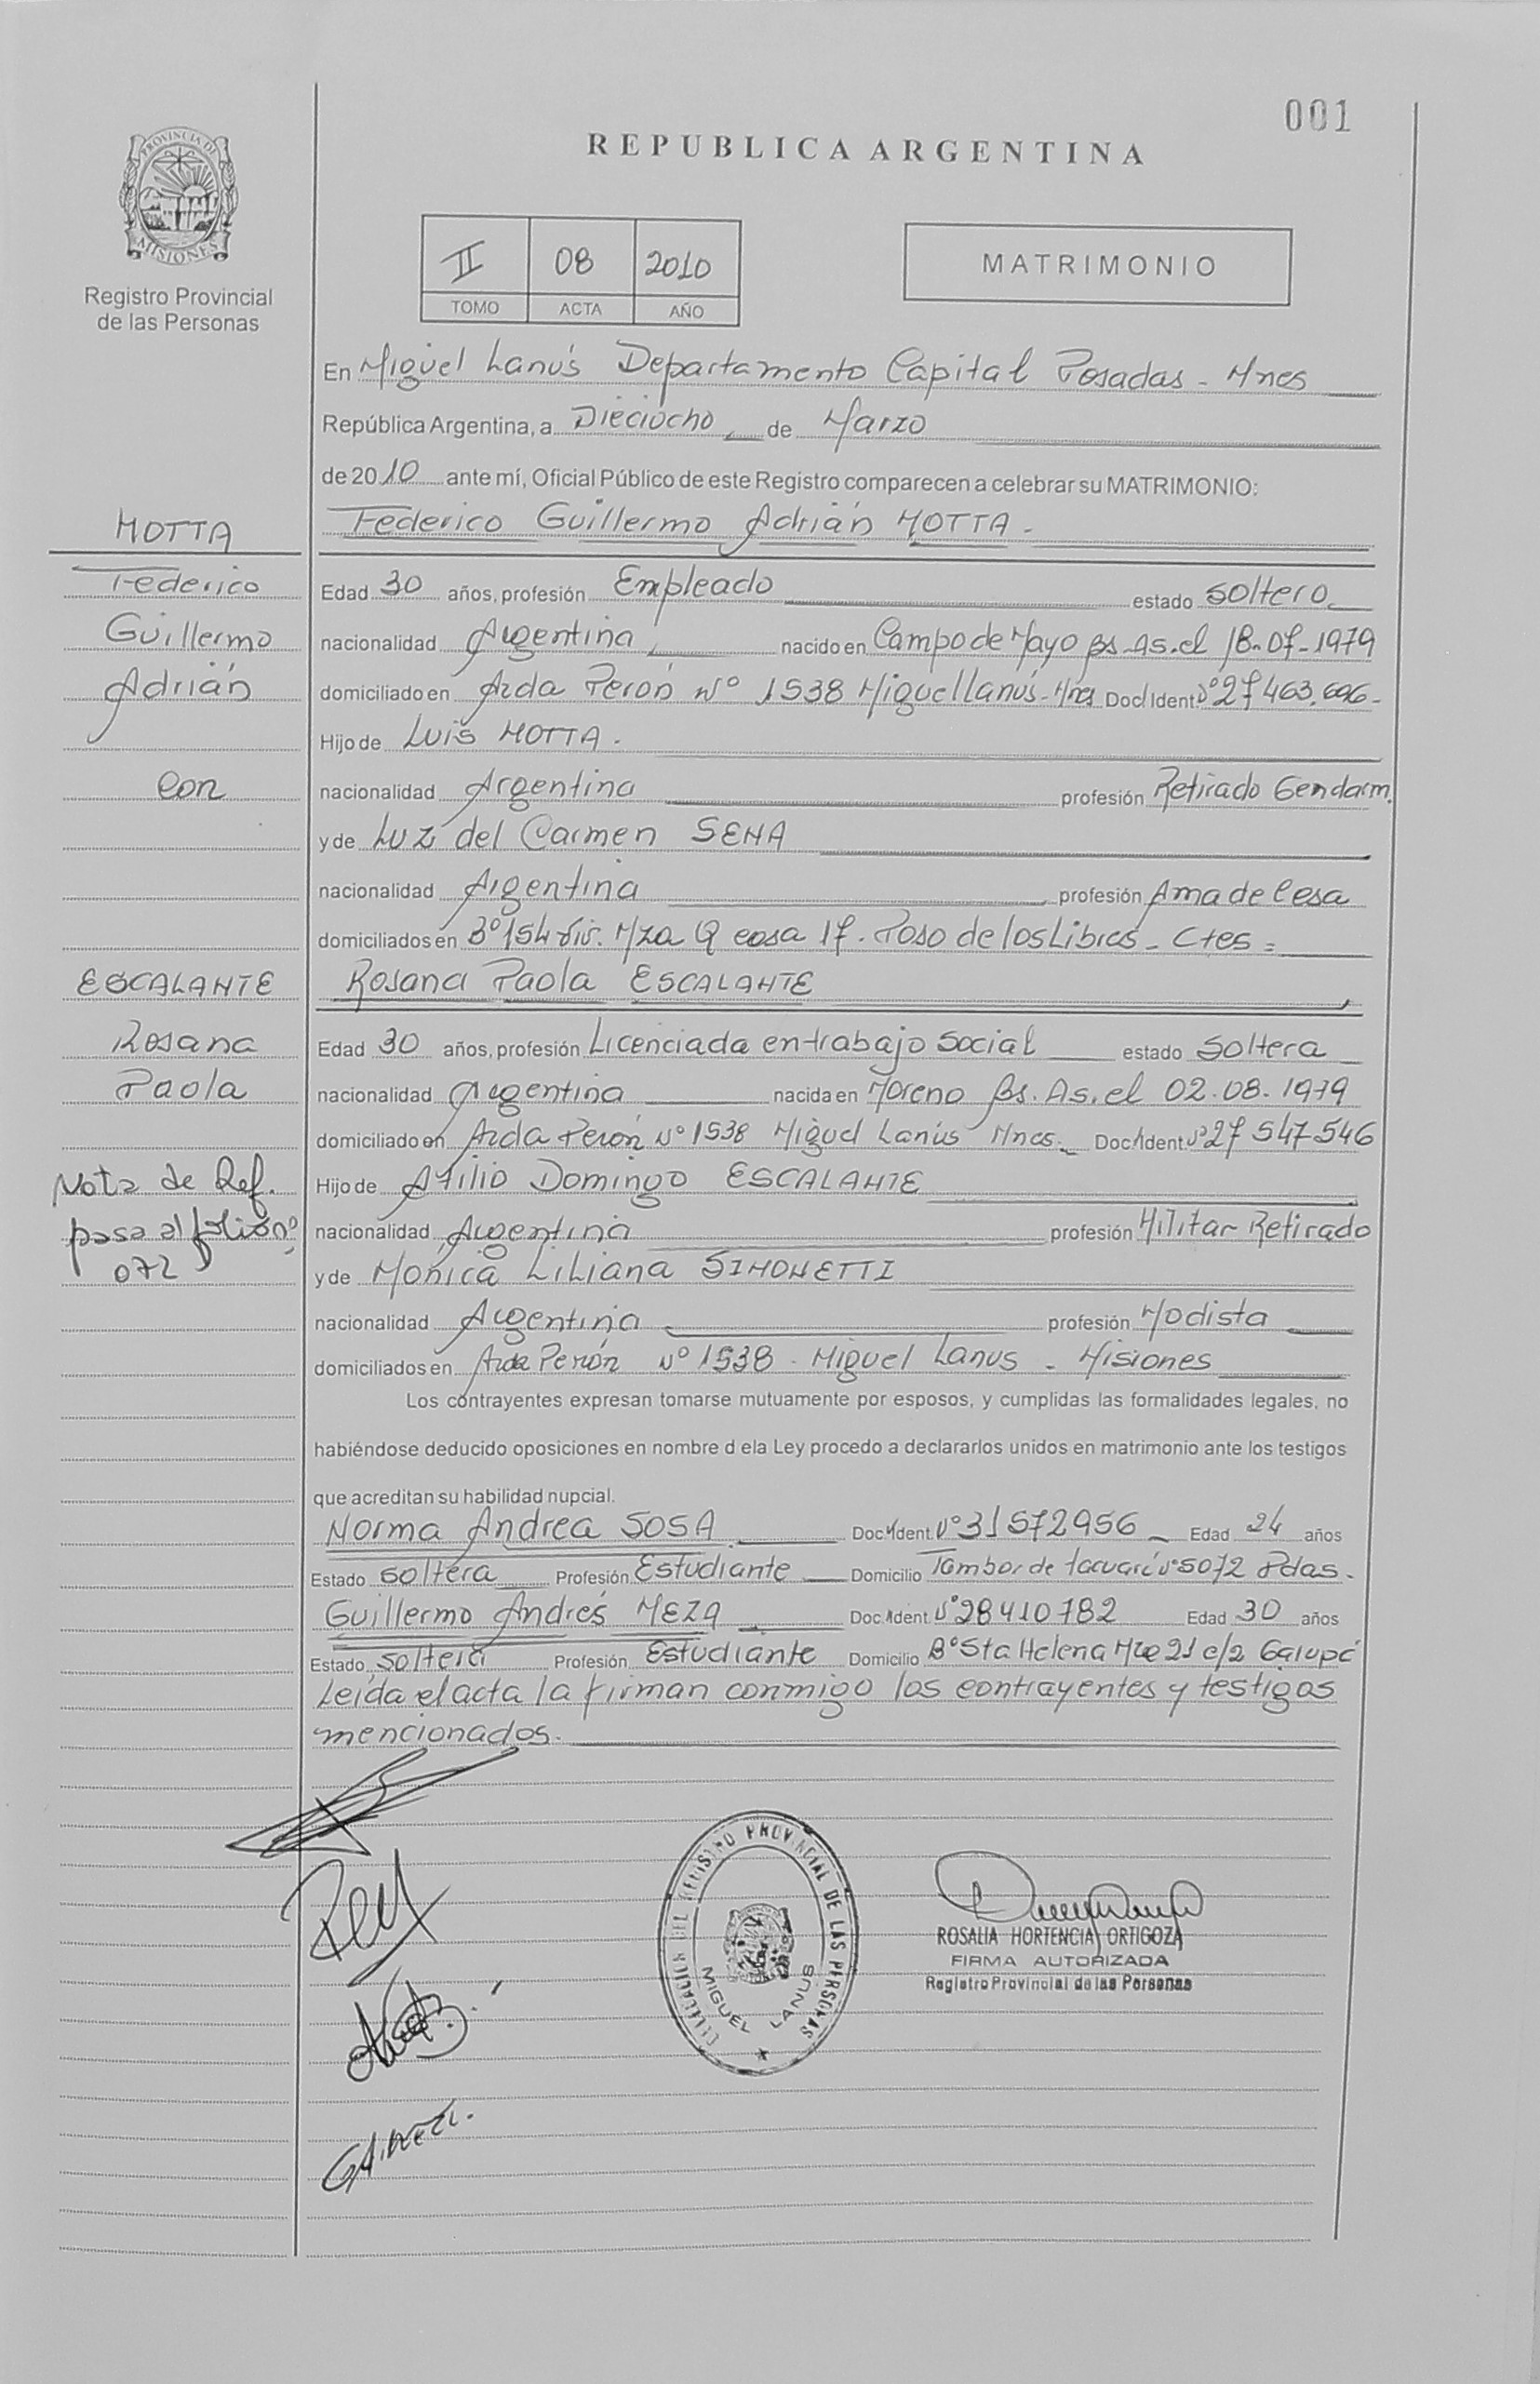 001
PROVINCIA DE
MISIONES
Registro Provincial
de las Personas
REPUBLICA ARGENTINA
II 08 2010
TOMO ACTA AÑO
MATRIMONIO
En Miguel Lanús Departamento Capital Posadas - Mnes
República Argentina, a Dieciocho de Marzo
de 2010 ante mí, Oficial Público de este Registro comparecen a celebrar su MATRIMONIO:
MOTTA
Federico
Guillermo
Adrián
con
ESCALANTE
Rosana
Paola
Nota de Ref.
pasa al folio nº
072
Federico Guillermo Adrián MOTTA -
Edad 30 años, profesión Empleado estado soltero
nacionalidad Argentina nacido en Campo de Mayo Bs-As. el 18-07-1979
domiciliado en Avda Perón Nº 1538 Miguel Lanús - Mnes Doc. Ident. Nº 27463.696-
Hijo de Luis MOTTA.
nacionalidad Argentina profesión Retirado Gendarm.
y de Luz del Carmen SENA
nacionalidad Argentina profesión Ama de Casa
domiciliados en Bº 154 viv. Mza Q casa 17. Paso de los Libres - Ctes =
Rosana Paola ESCALANTE
Edad 30 años, profesión Licenciada en trabajo Social estado Soltera
nacionalidad Argentina nacida en Moreno Bs. As. el 02-08-1979
domiciliado en Avda Perón Nº 1538 Miguel Lanús Mnes. Doc. Ident. Nº 27 547-546
Hijo de Atilio Domingo ESCALANTE
nacionalidad Argentina profesión Militar Retirado
y de Mónica Liliana SIMONETTI
nacionalidad Argentina profesión Modista
domiciliados en Avda Perón Nº 1538 - Miguel Lanus - Misiones
Los contrayentes expresan tomarse mutuamente por esposos, y cumplidas las formalidades legales, no
habiéndose deducido oposiciones en nombre d ela Ley procedo a declararlos unidos en matrimonio ante los testigos
que acreditan su habilidad nupcial.
Norma Andrea SOSA Doc. Ident. Nº 31572956 Edad 24 años
Estado soltera Profesión Estudiante Domicilio Tambor de tacuarí Nº 5072 Pdas.
Guillermo Andrés MEZA Doc. Ident. Nº 28410782 Edad 30 años
Estado soltero Profesión Estudiante Domicilio Bº Sta Helena Mza 21 c/2 Garupá
Leída el acta la firman conmigo los contrayentes y testigos
mencionados.
DEL REGISTRO PROVINCIAL DE LAS PERSONAS
MIGUEL LANUS
ROSALIA HORTENCIA ORTIGOZA
FIRMA AUTORIZADA
Registro Provincial de las Personas